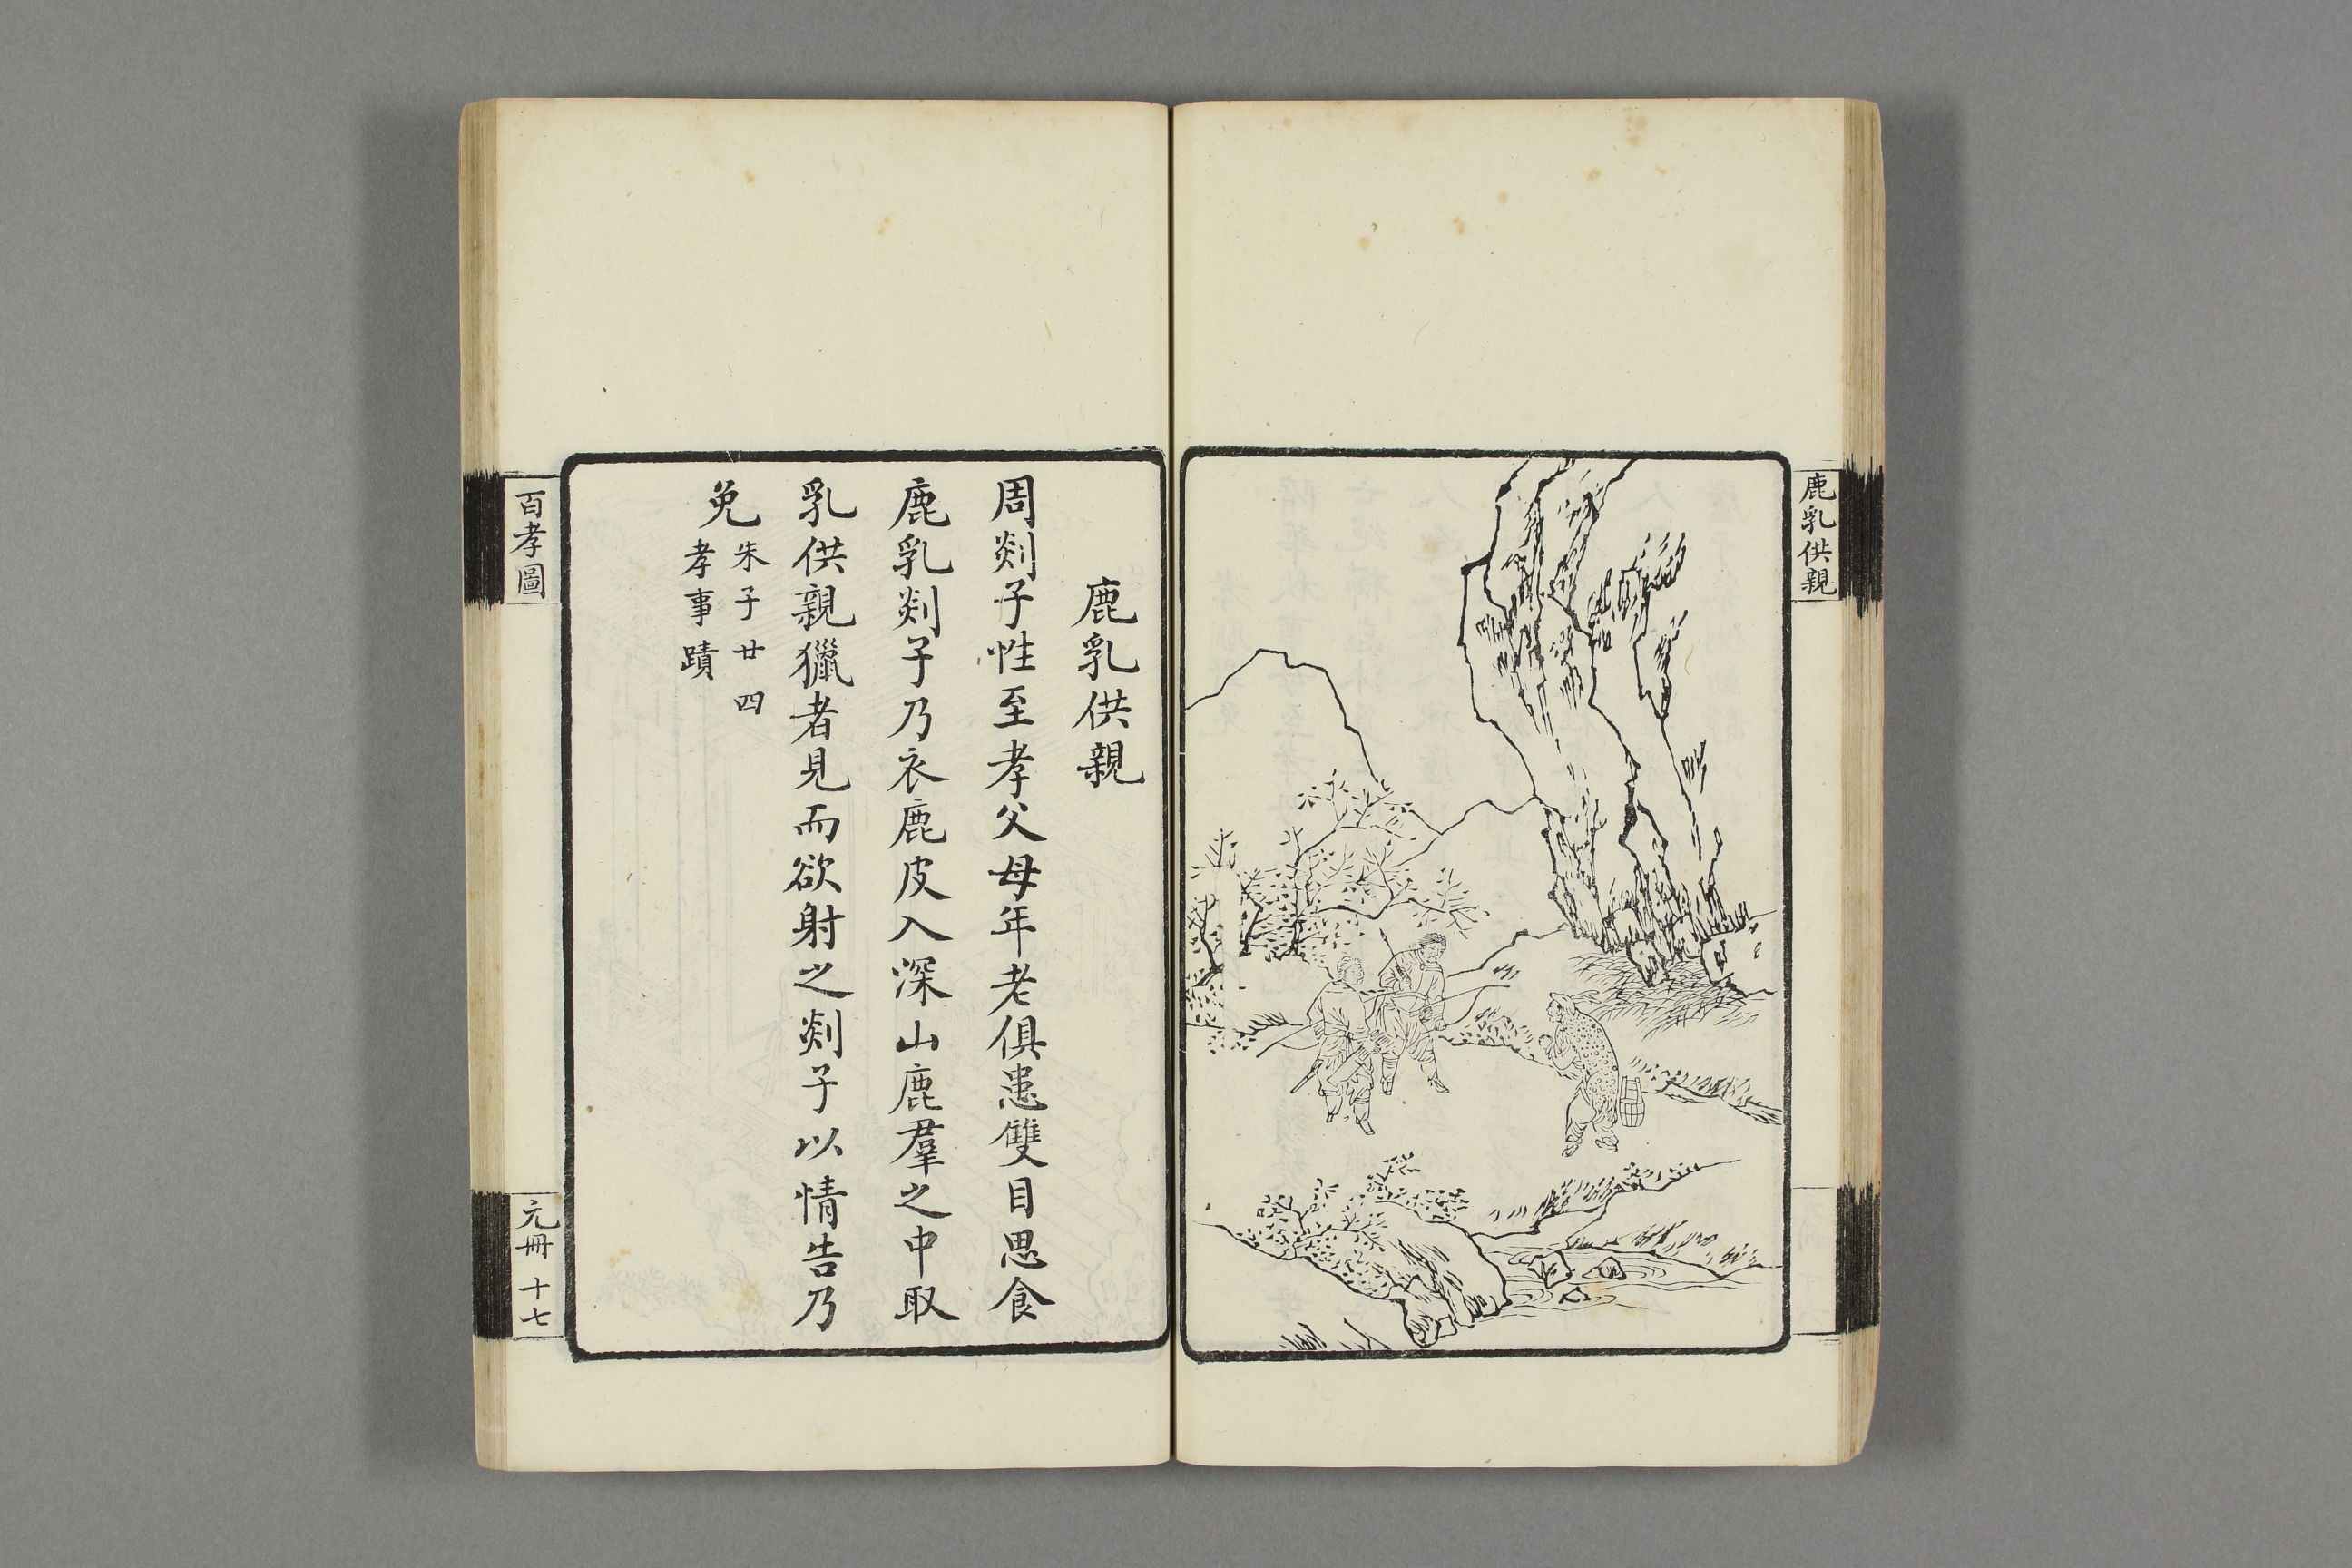 鹿乳供親
鹿乳供親
周剡子性至孝父母年老俱患雙目思食
鹿乳剡子乃衣鹿皮入深山鹿羣之中取
乳供親獵者見而欲射之剡子以情告乃
免朱子廿四
孝事蹟
百孝圖
元冊 十七